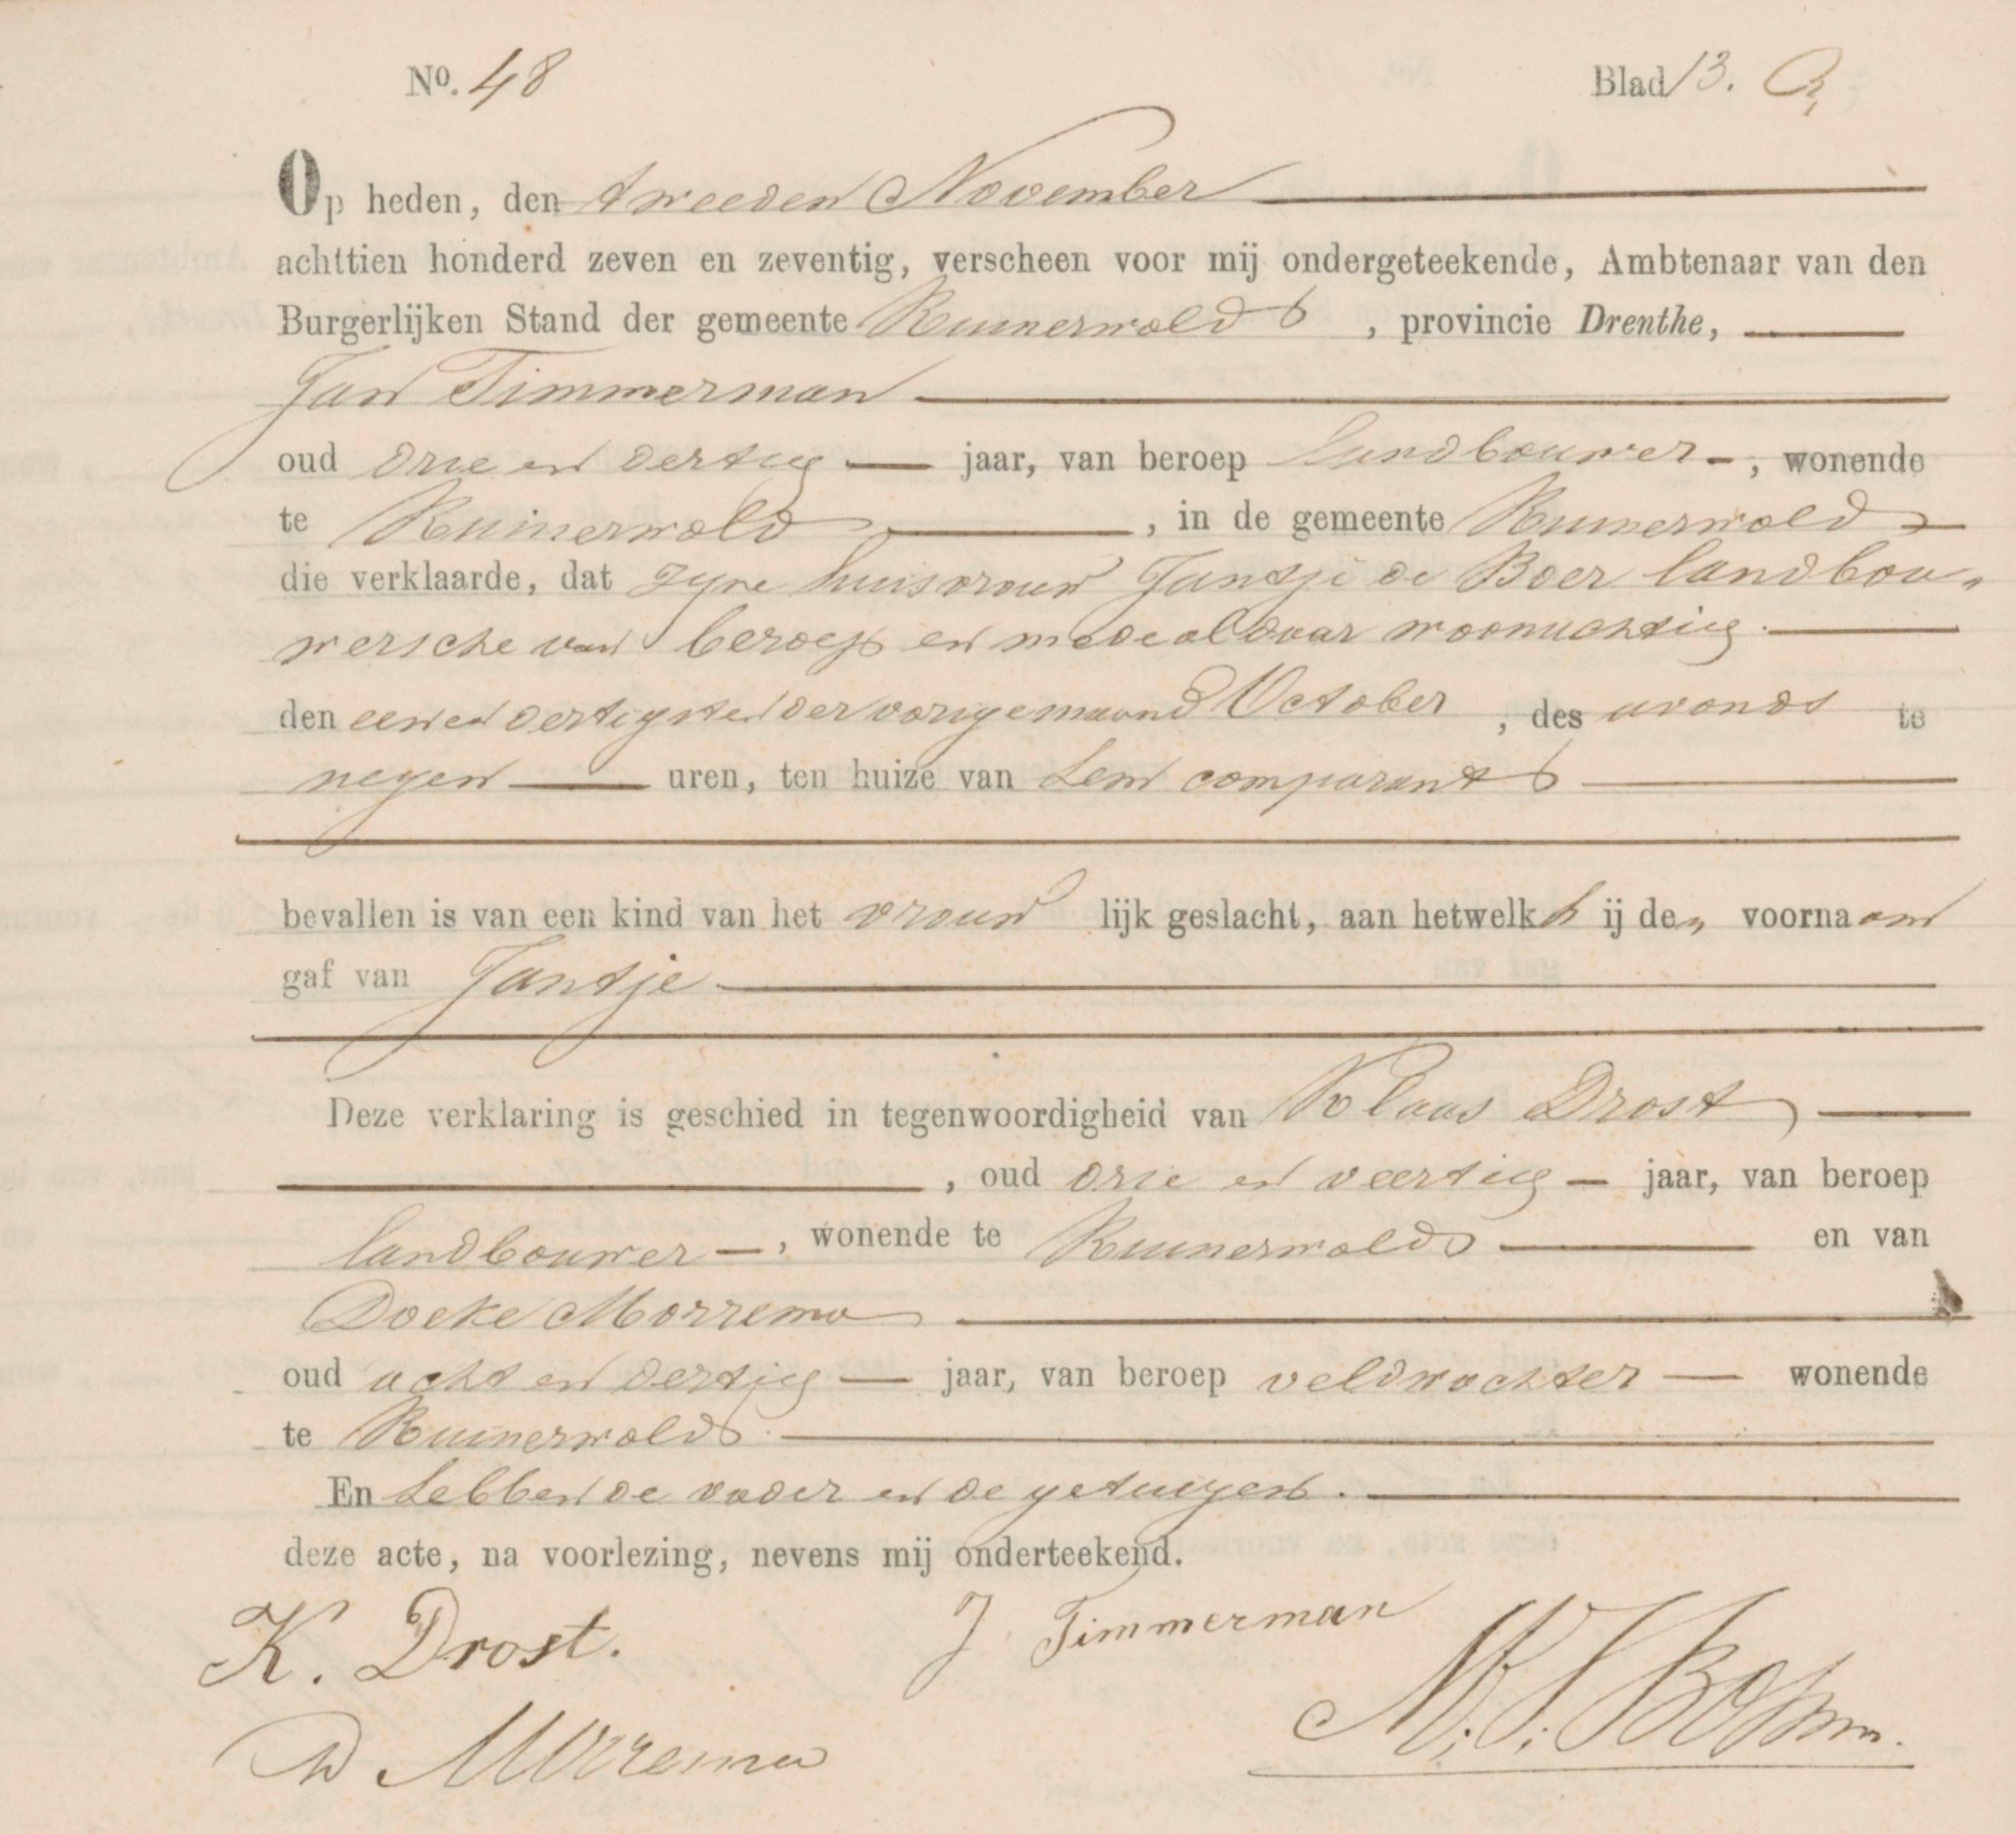 No. 48 Blad 13.
Op heden, den tweeden November
achttien honderd zeven en zeventig, verscheen voor mij ondergeteekende, Ambtenaar van den
Burgerlijken Stand der gemeente Ruinerwold, provincie Drenthe,
Jan Timmerman
oud drie en dertig jaar, van beroep landbouwer, wonende
te Ruinerwold, in de gemeente Ruinerwold
die verklaarde, dat zyne huisvrouw Jantje de Boer landbou„
wersche van beroep en mede aldaar woonachtig.
den een en dertigsten der vorige maand October, des avonds te
negen uren, ten huize van hem comparant
bevallen is van een kind van het vrouwlijk geslacht, aan hetwelk hij de„ voornaam
gaf van Jantje
Deze verklaring is geschied in tegenwoordigheid van Klaas Drost
, oud drie en veertig jaar, van beroep
landbouwer, wonende te Ruinerwold en van
Doeke Morrema
oud acht en dertig jaar, van beroep veldwachter wonende
te Ruinerwold.
En hebben de vader en de getuigen.
deze acte, na voorlezing, nevens mij onderteekend.
K. Drost. J Timmerman
D Morrema